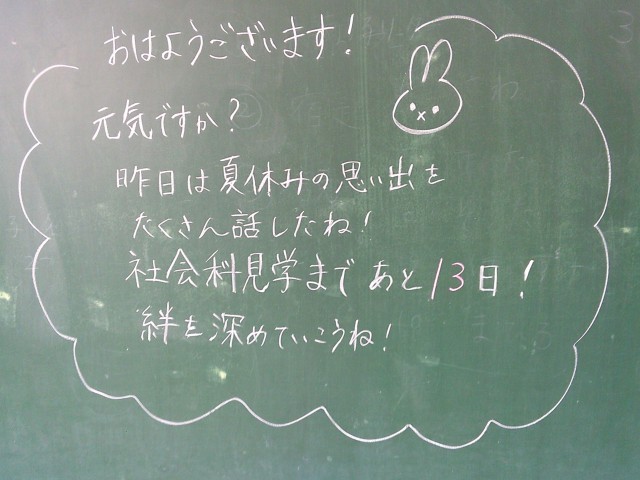 おはようございます!
元気ですか?
昨日は夏休みの思い出を
たくさん話したね!
社会科見学まであと13日!
絆を深めていこうね!